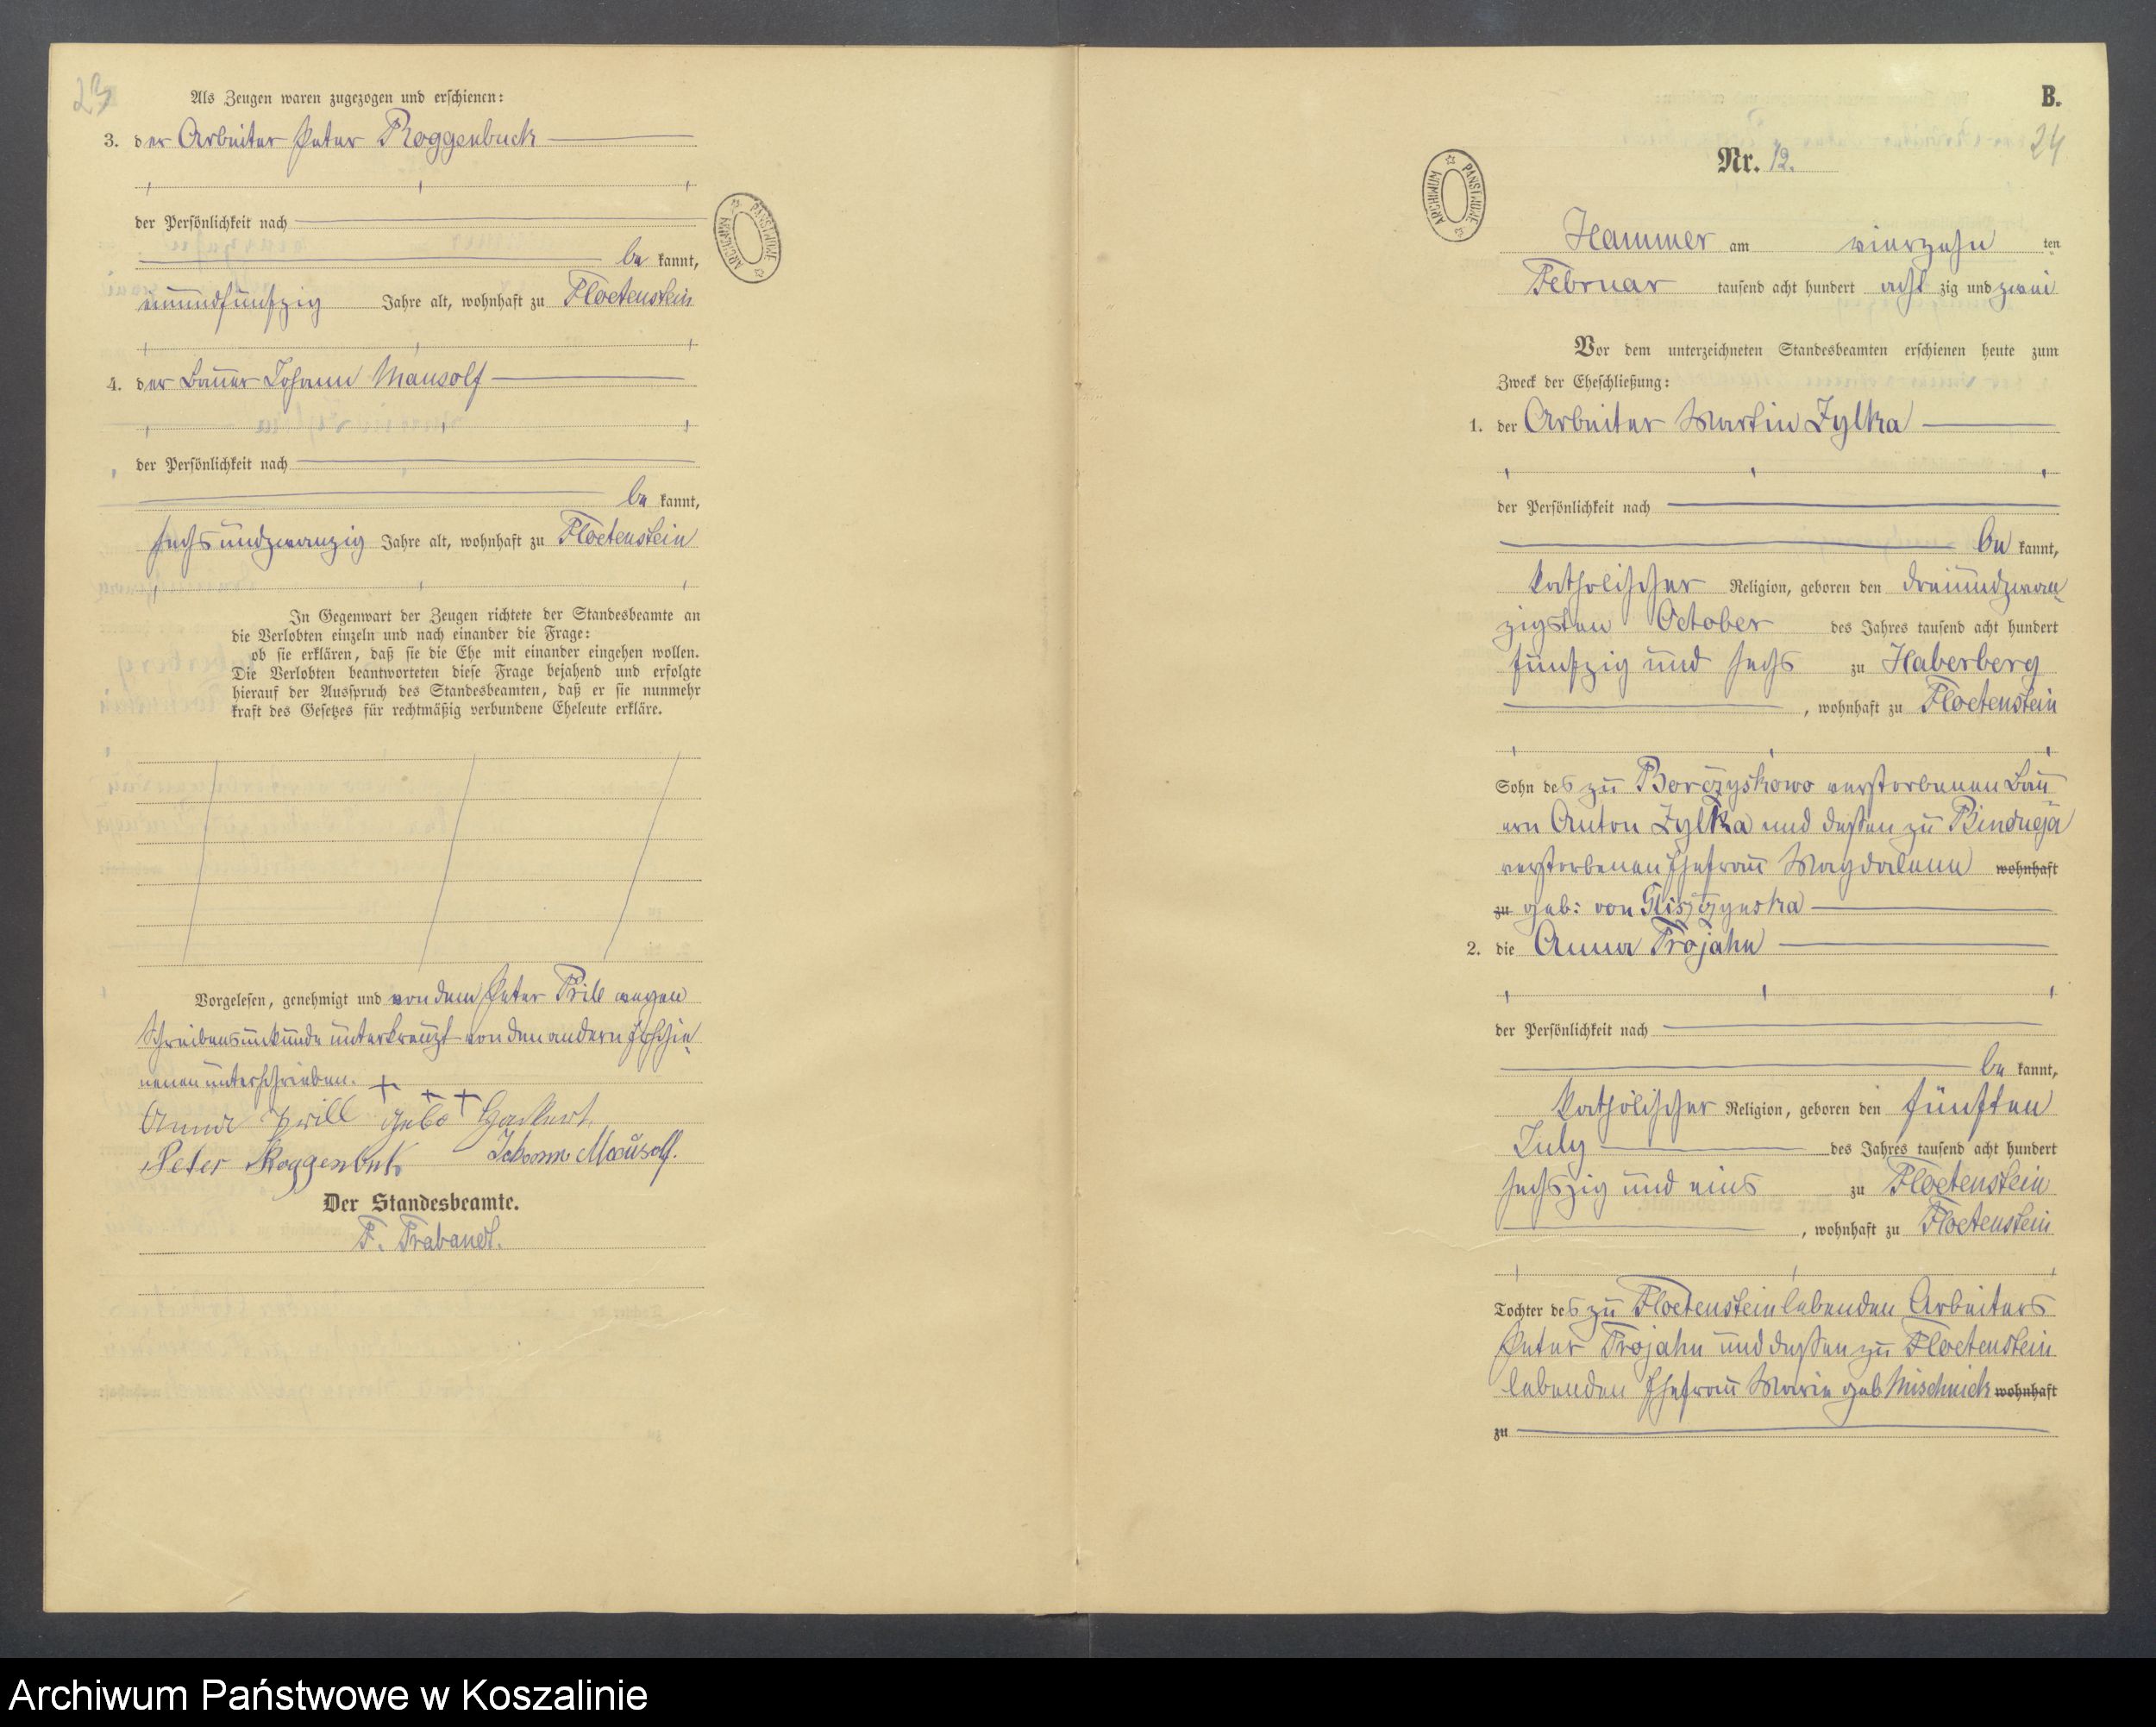 23
Als Zeugen waren zugezogen und erschienen:
3. der Arbeiter Peter Roggenbuck
der Persönlichkeit nach
be kannt,
einundfünfzig Jahre alt, wohnhaft zu Floetenstein
4. der Bauer Johann Mausolf
der Persönlichkeit nach
be kannt,
sechsundzwanzig Jahre alt, wohnhaft zu Floetenstein
In Gegenwart der Zeugen richtete der Standesbeamte an
die Verlobten einzeln und nach einander die Frage:
ob sie erklären, daß sie die Ehe mit einander eingehen wollen.
Die Verlobten beantworteten diese Frage bejahend und erfolgte
hierauf der Ausspruch des Standesbeamten, daß er sie nunmehr
kraft des Gesetzes für rechtmäßig verbundene Eheleute erkläre.
Vorgelesen, genehmigt und von dem Peter Prill wegen
Schreibensunkunde unterkreuzt von den andern Erschie
nenen unterschrieben. + + +
Anna Prill geb
Peter Roggenbuk Johann Mausolf.
Der Standesbeamte.
F. Trabandt.
ARCHIWUM PAŃSTWOWE
B.
24
Nr. 12.
ARCHIWUM PAŃSTWOWE
Hammer am vierzehn ten
Februar tausend acht hundert acht zig und zwei
Vor dem unterzeichneten Standesbeamten erschienen heute zum
Zweck der Eheschließung:
1. der Arbeiter Martin Zylka
der Persönlichkeit nach
be kannt,
katholischer Religion, geboren den dreiundzwan
zigsten October des Jahres tausend acht hundert
fünfzig und sechs zu Haberberg
, wohnhaft zu Floetenstein
Sohn des zu Borczyskowo verstorbenen Bau
ern Anton Zylka und dessen zu Binduga
verstorbenen Ehefrau Magdalene wohnhaft
zu geb: von Gliszczynska
2. die Anna Trojahn
der Persönlichkeit nach
be kannt,
katholischer Religion, geboren den fünften
July des Jahres tausend acht hundert
sechszig und eins zu Floetenstein
, wohnhaft zu Floetenstein
Tochter des zu Floetenstein lebenden Arbeiters
Peter Trojahn und dessen zu Floetenstein
lebenden Ehefrau Marie geb Mischnick wohnhaft
zu
Archiwum Państwowe w Koszalinie